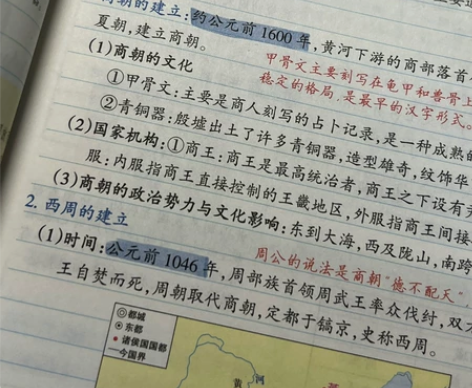 朝的建立:约公元前1600年,黄河下游的商部落首
夏朝,建立商朝。
甲骨文主要刻写在龟甲和兽骨
(1)商朝的文化
稳定的格局,是最早的汉字形式
①甲骨文:主要是商人刻写的占卜记录,是一种成熟的
②青铜器:殷墟出土了许多青铜器,造型雄奇,纹饰华
(2)国家机构:①商王:商王是最高统治者,商王之下设有
服:内服指商王直接控制的王畿地区,外服指商王间接
(3)商朝的政治势力与文化影响:东到大海,西及陇山,南跨
2. 西周的建立
周公的说法是商朝“德不配天”
(1)时间:公元前1046年,周部族首领周武王率众伐纣,双
王自焚而死,周朝取代商朝,定都于镐京,史称西周。
◎都城
⊙东都
•诸侯国国都
今国界
黄 河